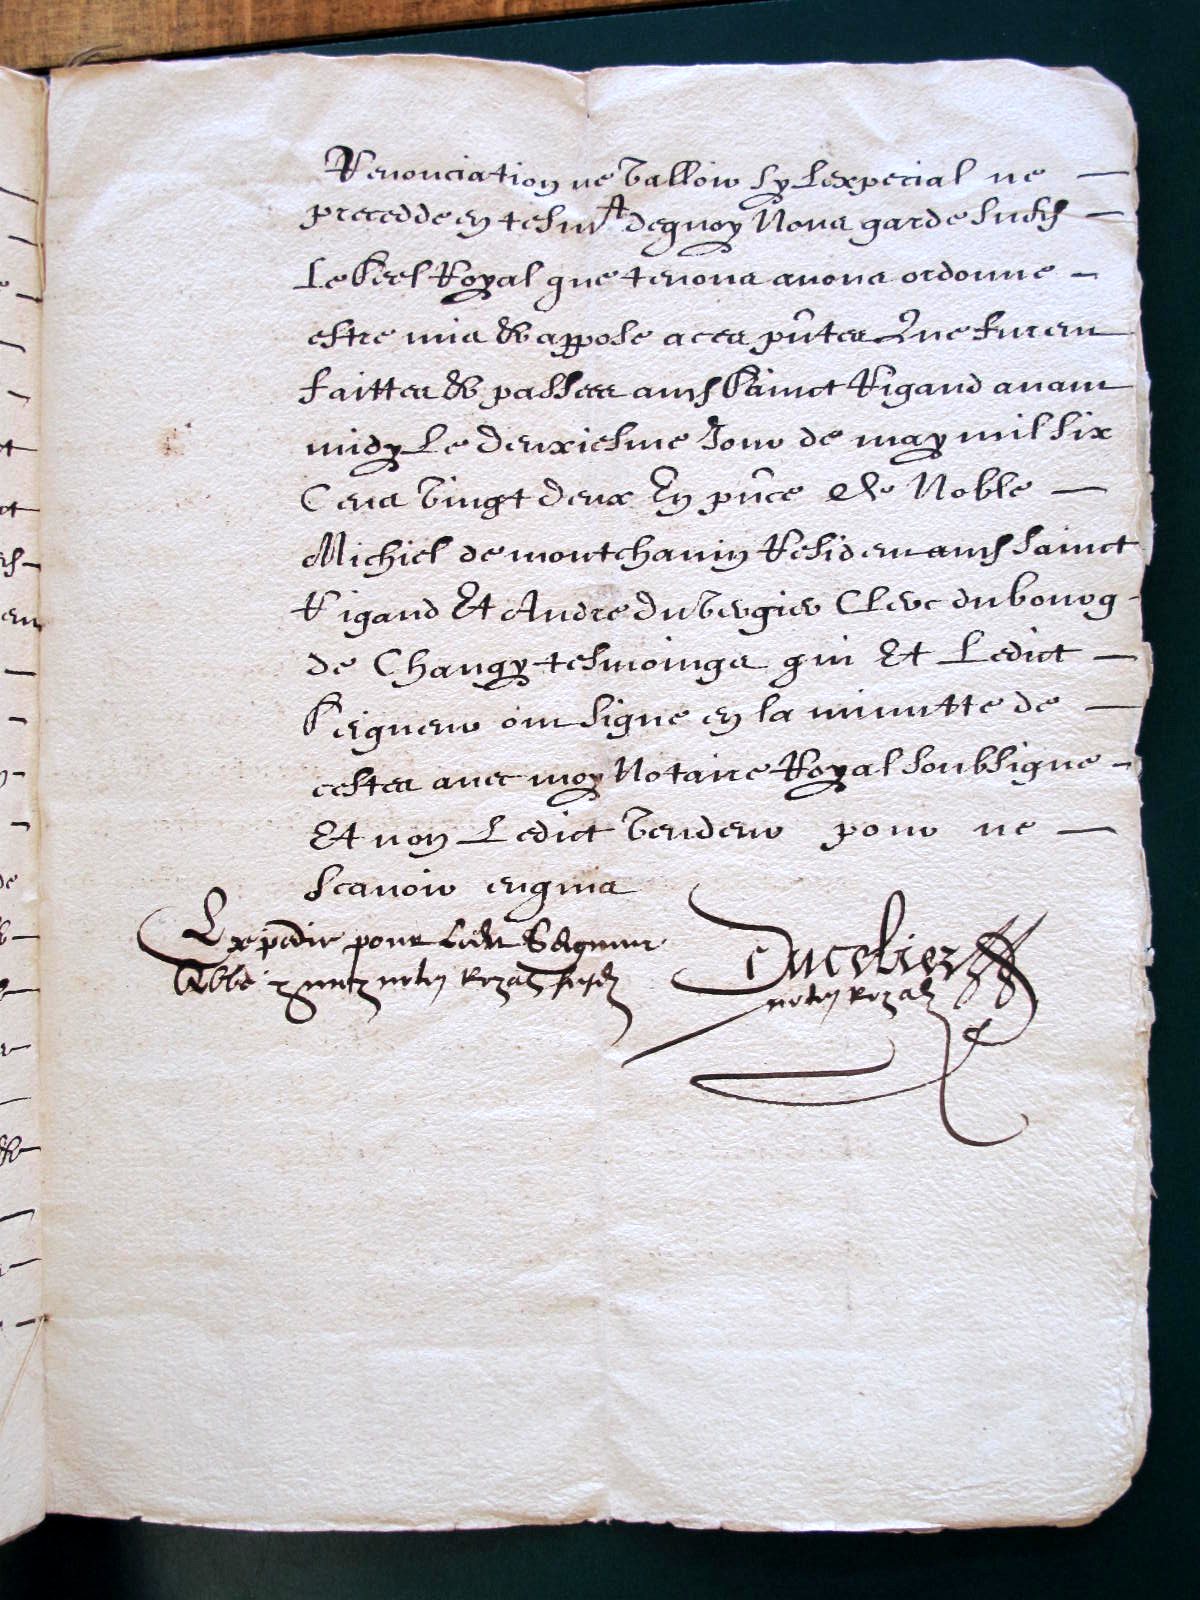 Renonciation ne valloir sy Lexpecial ne
precedde en tesm. dequoy Nous garde susd
Le Seel Royal que tenons avons ordonne
estre mis & appose a ces pntes Que furent
faittes & passees aud Sainct Rigaud avant
midy Le deuxiesme Jour de may mil six
Cens vingt deux En pnce de Noble
Michiel de montchanin Resident aud sainct
Rigaud Et Andre du Vergier Clerc du bourg
de Changy tesmoings qui Et Ledict
Seigneur ont signe en la minutte de
cestes avec moy Notaire Royal soubsigne
Et non Ledict Vendeur pour ne
scavoir enquis
Expedie pour Ledit Seigneur
Abbe notere Royal
notere Royal